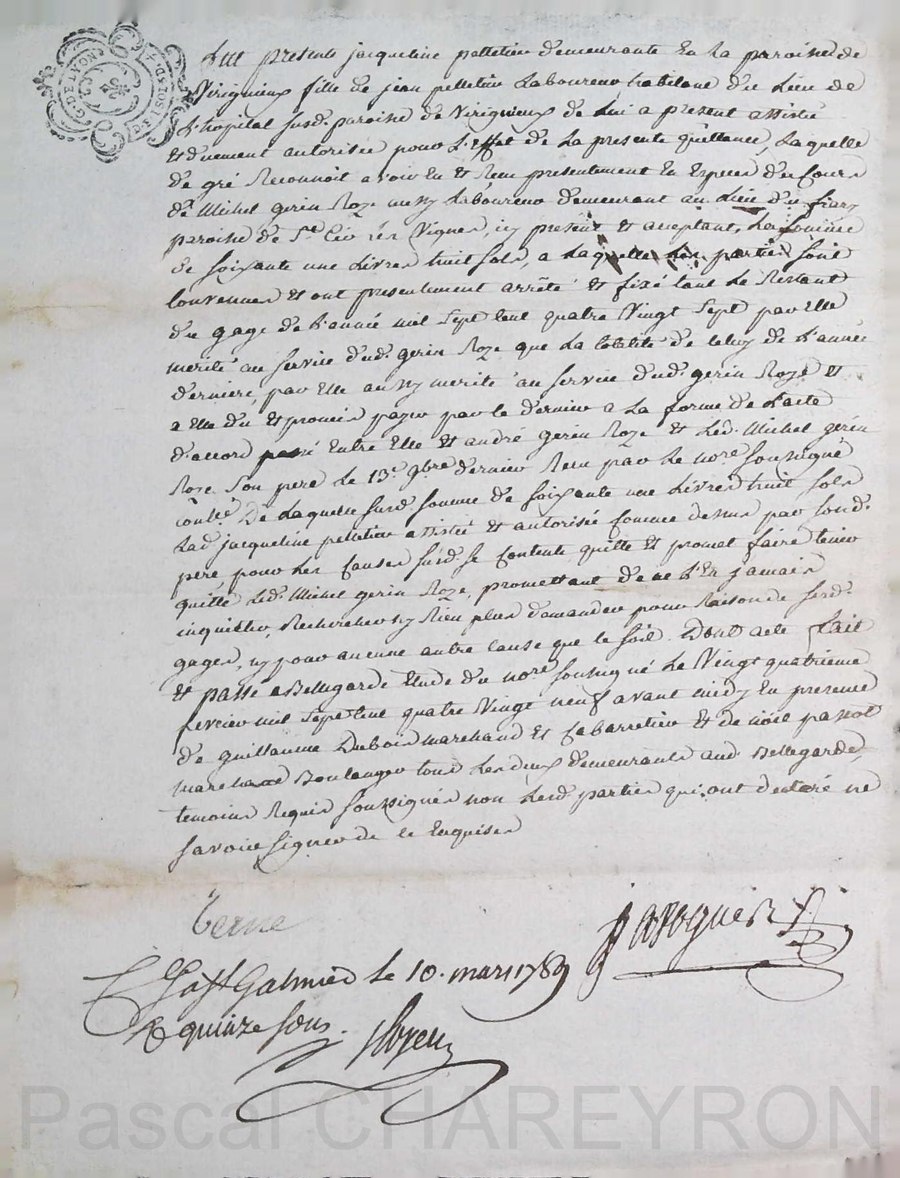 GEN. DE LYON
DEUX SOLS. D. F.
Fut presente jacqueline pelletier demeurante en la paroisse de
Virignieux fille de jean pelletier Laboureur habitant du Lieu de
L'hopital susd. paroisse de Virignieux de Lui a present assistée
et duement autorisée pour L'effet de La presente quittance, Laquelle
de gré Reconnoit avoir eu et Recu presentement en Especes du Cours
de Michel gerin Roze aussy Laboureur demeurant au Lieu du
paroisse de St. Cir Les Vignes, icy present et acceptant, La somme
de soixante une Livres huit sols, a Laquelle Les parties sont
convenues et ont presentement arrêté et fixé tant le Restant
du gage de L'année mil sept cent quatre Vingt sept par Elle
merité au service dud. gerin Roze que La totalité de celuy de L'année
derniere, par Elle aussy merité au service dud. gerin Roze et
a Elle du et promis payer par le dernier a La forme de L'acte
d'accord passé Entre Elle et andré gerin Roze et Led. Michel gerin
Roze son pere le 13e. 9bre dernier Recu par Le nore. soussigné
conlé. De Laquelle susd. somme de soixante une Livres huit sols
Lad. jacqueline pelletier assistée et autorisée comme dessus par sond.
pere, pour Les causes susd. se contente quitte et promet faire tenir
quitte Led. Michel gerin Roze, promettant de ne L'En jamais
inquieter, Rechercher ny Rien plus demander pour Raison de susd.
gages, ny pour aucune autre cause que ce soit. Dont acte fait
et passé a Bellegarde Etude du nore. soussigné Le Vingt quatrieme
fevrier mil sept cent quatre Vingt neuf avant midy En presence
de guillaume Dubois marchand et Cabaretier et de noël
marchand Boulanger tous Les deux demeurants aud. Bellegarde,
temoins Requis soussignés non Lesd. parties qui ont declaré ne
savoir signer de ce Enquises
Terme
Ct. a St Galmier le 10. mars 1789
R quinze sous.
Pascal CHAREYRON